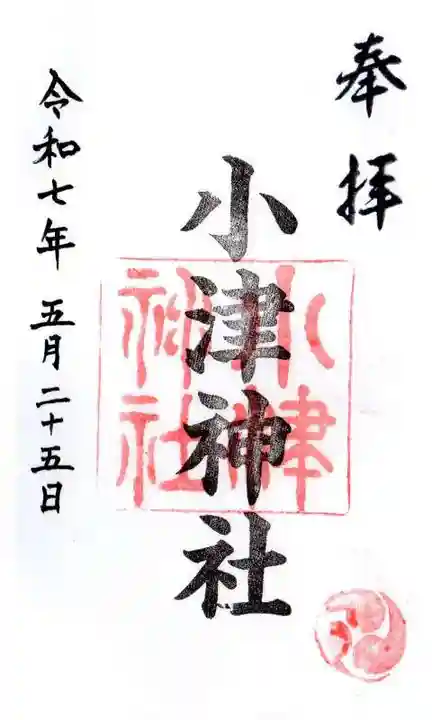 奉拝
小津神社
小津神社
令和七年 五月二十五日